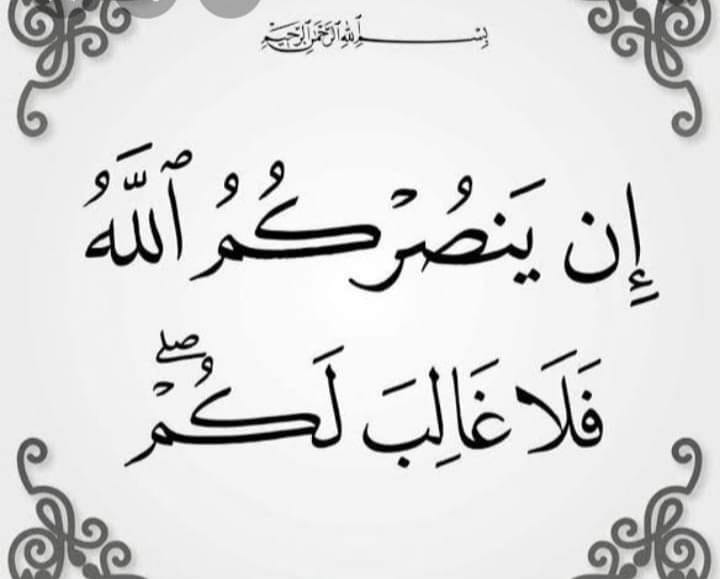 بِسْمِ ٱللَّهِ ٱلرَّحْمَٰنِ ٱلرَّحِيمِ
إِن يَنصُرْكُمُ ٱللَّهُ
فَلَا غَالِبَ لَكُمْ ۖ